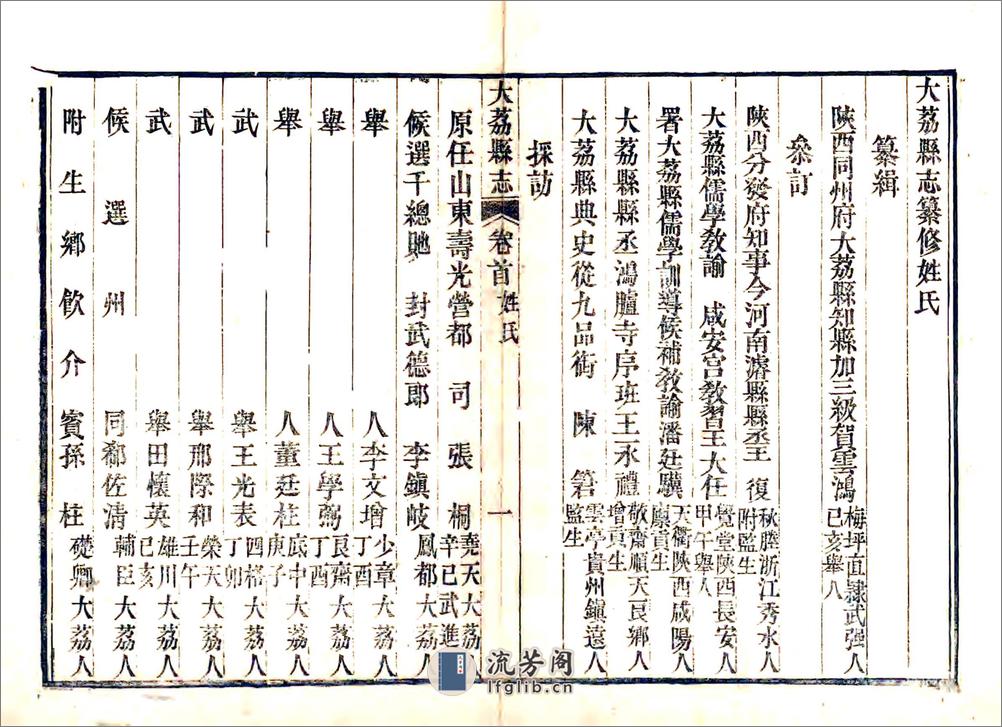 大荔縣志纂修姓氏
纂緝
陝西同州府大荔縣知縣加三級賀雲鴻 梅坪直隸武强人 己亥舉人
叅訂
陝西分發府知事今河南濬縣縣丞王復 秋塍浙江秀水人 附監生
大荔縣儒學敎諭 咸安宫敎習王大任 覺堂陝西長安人 甲午舉人
署大荔縣儒學訓導候補敎諭潘廷驥 天衢陝西咸陽人 廪貢生
大荔縣縣丞鴻臚寺序班王永禮 敬齋順天良鄉人 增貢生
大荔縣典史從九品銜 陳 雲亭貴州鎮遠人 監生
採訪
大荔縣志 卷首 姓氏 一
原任山東壽光營都司張桐 堯天大荔人 辛巳武進
候選千總貤 封武德郎 李鎮岐 鳳都大荔人
舉人李文增 少章大荔人 壬酉
舉人王學弼 艮齋大荔人 丁酉
舉人董廷柱 底中大荔人 庚子
武舉王光表 四格大荔人 丁卯
武舉邢際和 榮天大荔人 壬午
武舉田懷英 雄川大荔人 己亥
候選州同郗佐清 輔臣大荔人
附生鄉飲介賓孫柱 礎卿大荔人
流芳阁
lfglib.cn